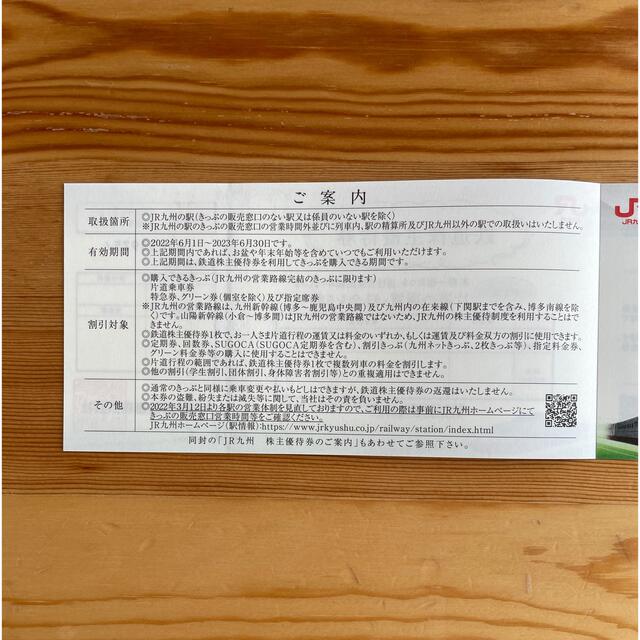 ご案内
取扱箇所
◎JR九州の駅(きっぷの販売窓口のない駅又は係員のいない駅を除く)
※JR九州の駅のきっぷの販売窓口の営業時間外並びに列車内、駅の精算所及びJR九州以外の駅での取扱いはいたしません。
有効期間
◎2022年6月1日~2023年6月30日です。
◎上記期間内であれば、お盆や年末年始等を含めていつでもご利用いただけます。
◎上記期間は、鉄道株主優待券を利用してきっぷを購入できる期間です。
割引対象
◎購入できるきっぷ(JR九州の営業路線完結のきっぷに限ります)
片道乗車券
特急券、グリーン券(個室を除く)及び指定席券
※JR九州の営業路線は、九州新幹線(博多~鹿児島中央間)及び九州内の在来線(下関駅までを含み、博多南線を除
く)です。山陽新幹線(小倉~博多間)はJR九州の営業路線ではないため、JR九州の株主優待制度を利用することはで
きません。
◎鉄道株主優待券1枚で、お一人さま片道行程の運賃又は料金のいずれか、もしくは運賃及び料金双方の割引に使用できます。
◎定期券、回数券、SUGOCA(SUGOCA定期券を含む)、割引きっぷ(九州ネットきっぷ、2枚きっぷ等)、指定料金券、
グリーン料金券等の購入に使用することはできません。
◎片道行程の範囲であれば、本券1枚で複数列車の料金を割引します。
◎他の割引(学生割引、団体割引、身体障害者割引等)との重複適用はできません。
その他
◎通常のきっぷと同様に乗車変更や払いもどしはできますが、鉄道株主優待券の返還はいたしません。
◎本券の盗難、紛失または滅失等に関して、当社はその責を負いません。
◎2022年3月12日より各駅の営業体制を見直しておりますので、ご利用の際は事前にJR九州ホームページにて
きっぷの販売窓口営業時間等をご確認ください。
JR九州ホームページ(駅情報):https://www.jrkyushu.co.jp/railway/station/index.html
同封の「JR九州 株主優待券のご案内」もあわせてご参照下さい。
JR九州